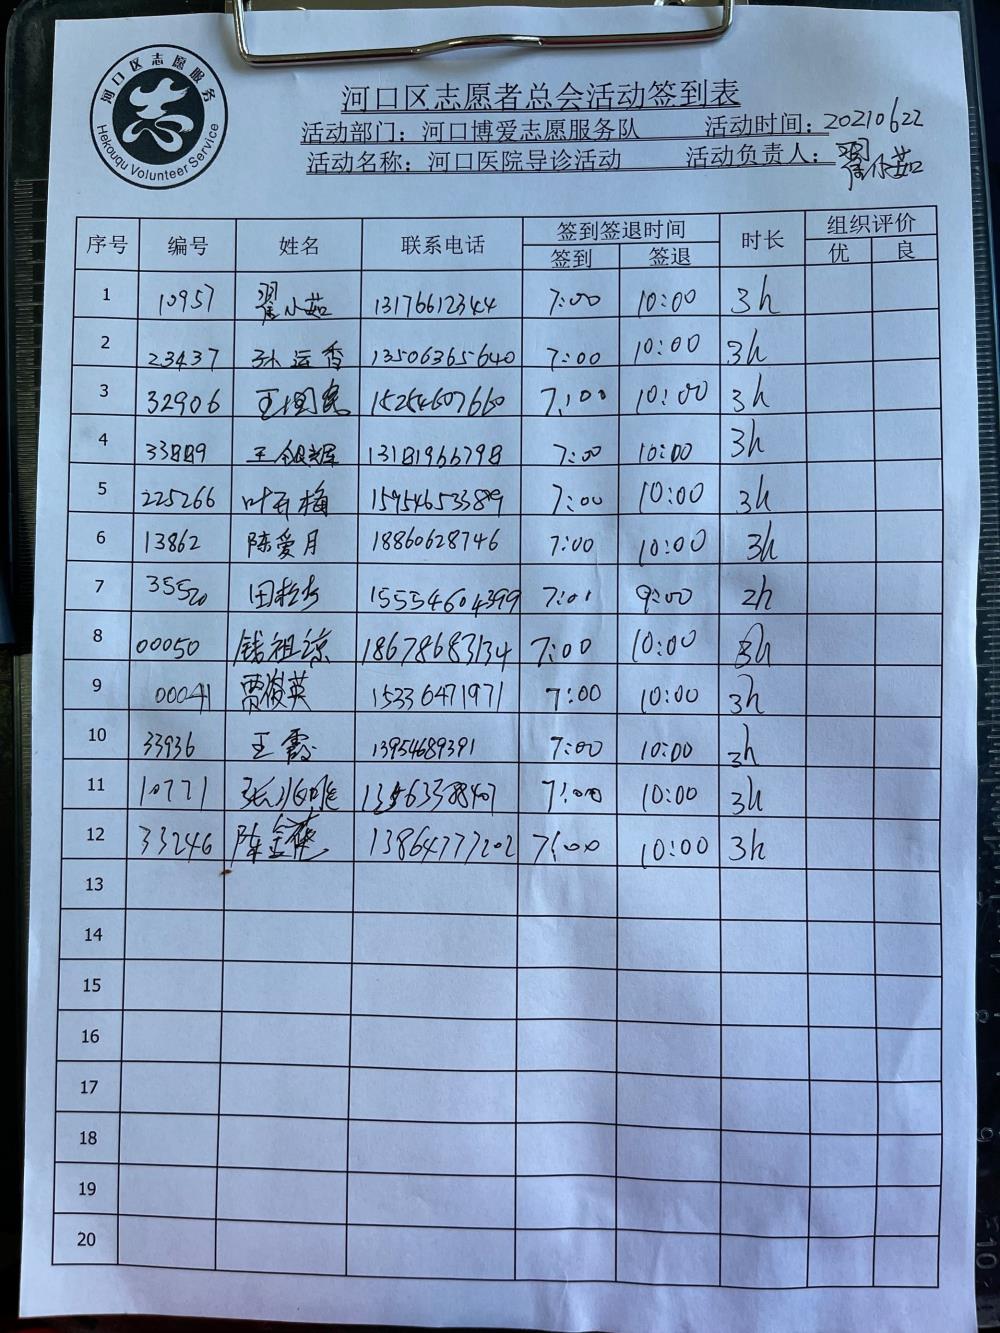 河口区志愿服务
Hekouqu Volunteer Service
志
河口区志愿者总会活动签到表
活动部门：河口博爱志愿服务队 活动时间：20210622
活动名称：河口医院导诊活动 活动负责人：翟小茹
序号 编号 姓名 联系电话 签到签退时间 时长 组织评价
签到 签退 优 良
1 10957 翟小茹 13176612344 7:00 10:00 3h
2 23437 孙运香 13506365640 7:00 10:00 3h
3 32906 王国宪 15254607660 7:00 10:00 3h
4 33889 王银辉 13181966798 7:00 10:00 3h
5 225266 叶百梅 15954653389 7:00 10:00 3h
6 13862 陈爱月 18860628746 7:00 10:00 3h
7 35520 15554604399 7:01 9:00 2h
8 00050 钱祖琼 18678683134 7:00 10:00 3h
9 00041 贾俊英 15336471971 7:00 10:00 3h
10 33936 王霞 13954689391 7:00 10:00 3h
11 10771 13563388407 7:00 10:00 3h
12 33246 陈金莲 13864777202 7:00 10:00 3h
13
14
15
16
17
18
19
20